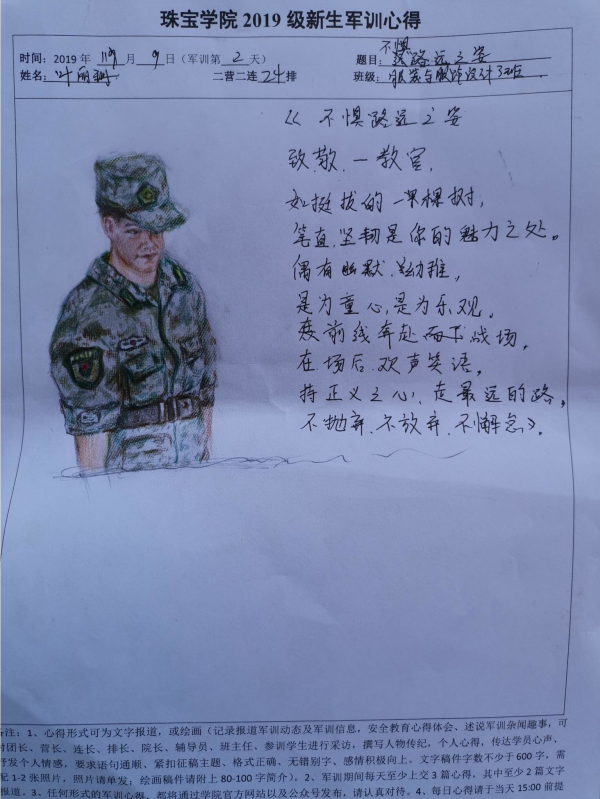 珠宝学院 2019 级新生军训心得
时间：2019 年 11 月 9 日（军训第 2 天）
题目：不惧路远之姿
姓名：叶丽珊 二营二连 24 排
班级：服装与服饰设计3班
《 不惧路远之姿
致敬一教官
如挺拔的一棵树，
笔直、坚韧是你的魅力之处。
偶有幽默、幼稚，
是为童心，是为乐观。
前线奔赴 战场，
在场后，欢声笑语，
持正义之心，走最远的路，
不抛弃、不放弃、不懈怠》。
备注：1、心得形式可为文字报道，或绘画（记录报道军训动态及军训信息，安全教育心得体会、述说军训杂闻趣事，可
对团长、营长、连长、排长、院长、辅导员、班主任、参训学生进行采访，撰写人物传纪，个人心得，传达学员心声、
抒发个人情感，要求语句通顺、紧扣征稿主题、格式正确、无错别字、感情积极向上。文字稿件字数不少于 600 字，需
配 1-2 张照片，照片请单发；绘画稿件请附上 80-100 字简介）。2、军训期间每天至少上交 3 篇心得，其中至少 2 篇文字
报道。3、任何形式的军训心得，都将通过学院官方网站以及公众号发布，请认真对待。4、每日心得请于当天 15:00 前提